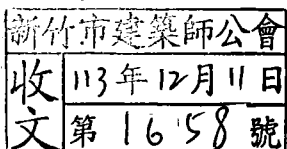 新竹市建築師公會
收文
113年12月11日
第1658號